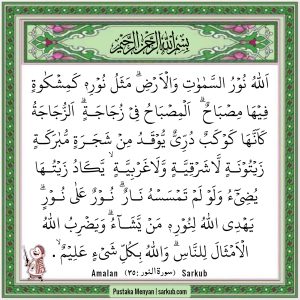 بِسْمِ اللهِ الرَّحْمٰنِ الرَّحِيْمِ
اَللهُ نُوْرُ السَّمٰوٰتِ وَالْاَرْضِۗ مَثَلُ نُوْرِهٖ كَمِشْكٰوةٍ
فِيْهَا مِصْبَاحٌۗ اَلْمِصْبَاحُ فِيْ زُجَاجَةٍۗ اَلزُّجَاجَةُ
كَاَنَّهَا كَوْكَبٌ دُرِّيٌّ يُّوْقَدُ مِنْ شَجَرَةٍ مُّبٰرَكَةٍ
زَيْتُوْنَةٍ لَّا شَرْقِيَّةٍ وَّلَا غَرْبِيَّةٍۙ يَّكَادُ زَيْتُهَا
يُضِيْۤءُ وَلَوْ لَمْ تَمْسَسْهُ نَارٌۗ نُوْرٌ عَلٰى نُوْرٍۗ
يَهْدِى اللهُ لِنُوْرِهٖ مَنْ يَّشَاۤءُۗ وَيَضْرِبُ اللهُ
الْاَمْثَالَ لِلنَّاسِۗ وَاللهُ بِكُلِّ شَيْءٍ عَلِيْمٌۙ .
Amalan (سورة النور: ٣٥) Sarkub
Pustaka Menyan | sarkub.com